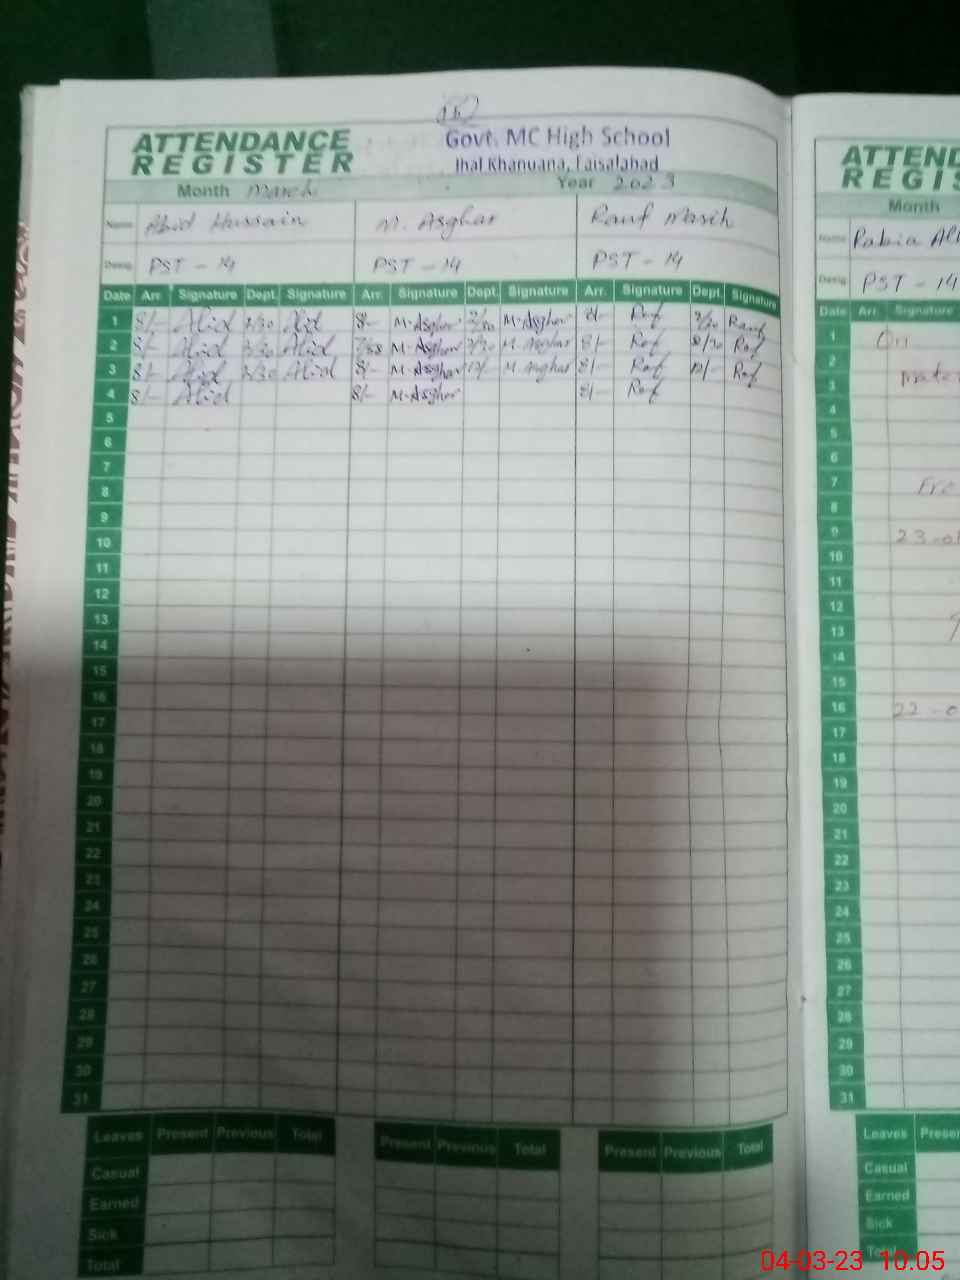 ATTENDANCE
REGISTER
Govt. MC High School
Jhal Khanuana, Faisalabad
Month March Year 2023
Name Abid Hussain M. Asghar Rauf Masih
Desig. PST - 14 PST - 14 PST - 14
Date Arr. Signature Dept. Signature Arr. Signature Dept. Signature Arr. Signature Dept. Signature
1 8/- Abid 2/30 Abid 8/- M-Asghar 2/30 M-Asghar 8/- Rauf
2 8/- Abid 2/30 Abid 7/58 M-Asghar 2/30 M. Asghar 8/-
3 8/- Abid Abid 8/- M-Asghar 12/- M Asghar 8/- 12/-
4 8/- Abid 8/- M-Asghar 8/-
5
6
7
8
9
10
11
12
13
14
15
16
17
18
19
20
21
22
23
24
25
26
27
28
29
30
31
Leaves Present Previous Total Present Previous Total Present Previous Total
Casual
Earned
Sick
Total
ATTEND
REGIS
Month
Name Rabia Ali
Desig. PST - 14
Date Arr. Signature
1 On
2
3 mater
4
5
6
7 Fro
8
9 23-0
10
11
12
13
14
15
16 22-0
17
18
19
20
21
22
23
24
25
26
27
28
29
30
31
Leaves Prese
Casual
Earned
Sick
Total
04-03-23 10:05